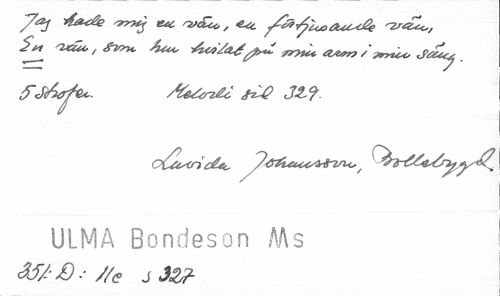 Jag hade mig en vän, en förtjusande vän,
En vän, som har hvilat på min arm i min säng.
5 strofer. Melodi sid 329.
Lavida Johansson, Bollebygd.
ULMA Bondeson Ms
351: D: 11c s 327